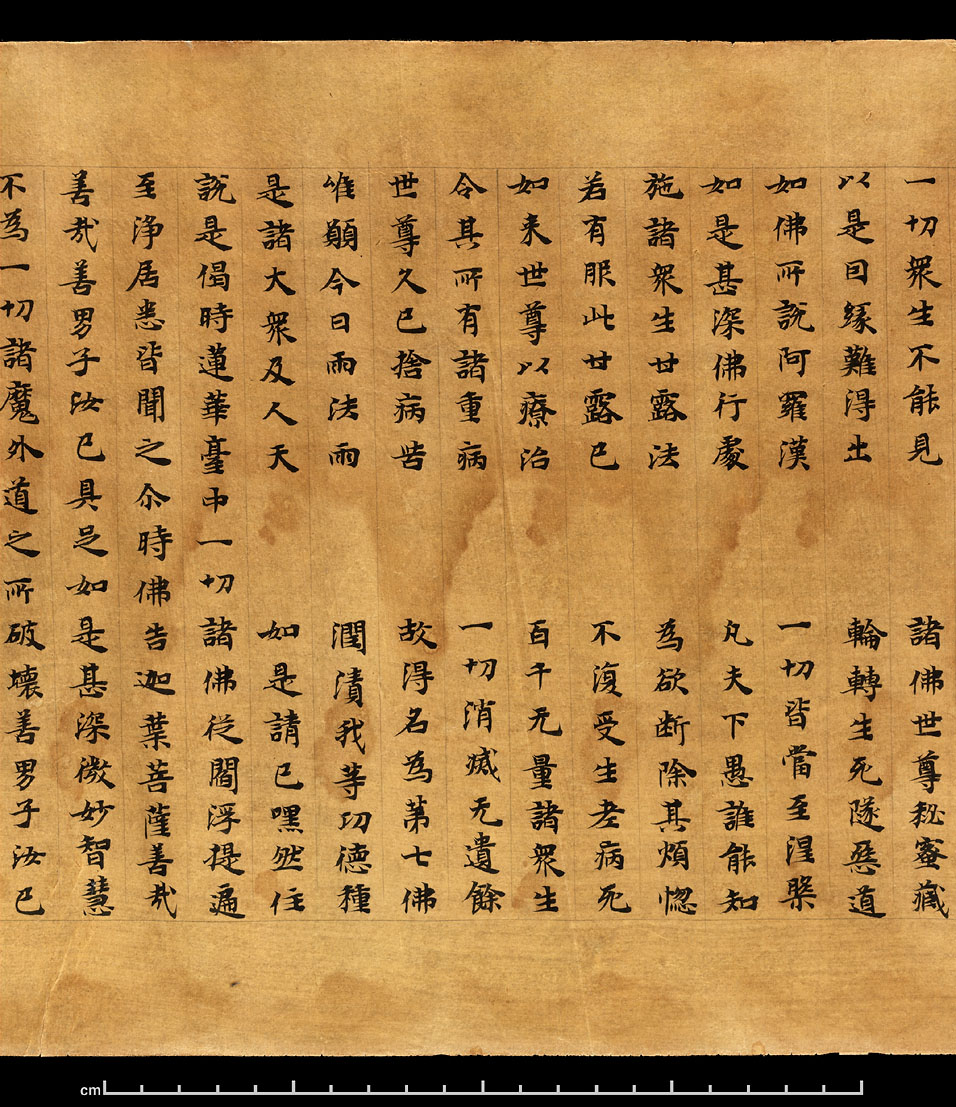 一切衆生不能見　諸佛世尊秘蜜藏
以是因緣難得出　輪轉生死墜惡道
如佛所說阿羅漢　一切皆當至涅槃
如是甚深佛行處　凡夫下愚誰能知
施諸衆生甘露法　為欲断除其煩惚
若有服此甘露已　不復受生老病死
如来世尊以療治　百千无量諸衆生
令其所有諸重病　一切消滅无遺餘
世尊久已捨病苦　故得名為苐七佛
唯願今日雨法雨　潤漬我等功德種
是諸大衆及人天　如是請已嘿然住
說是偈時蓮華臺中一切諸佛從閻浮提遍
至淨居悉皆聞之尒時佛告迦葉菩薩善哉
善哉善男子汝已具足如是甚深微妙智慧
不為一切諸魔外道之所破壞善男子汝已
cm